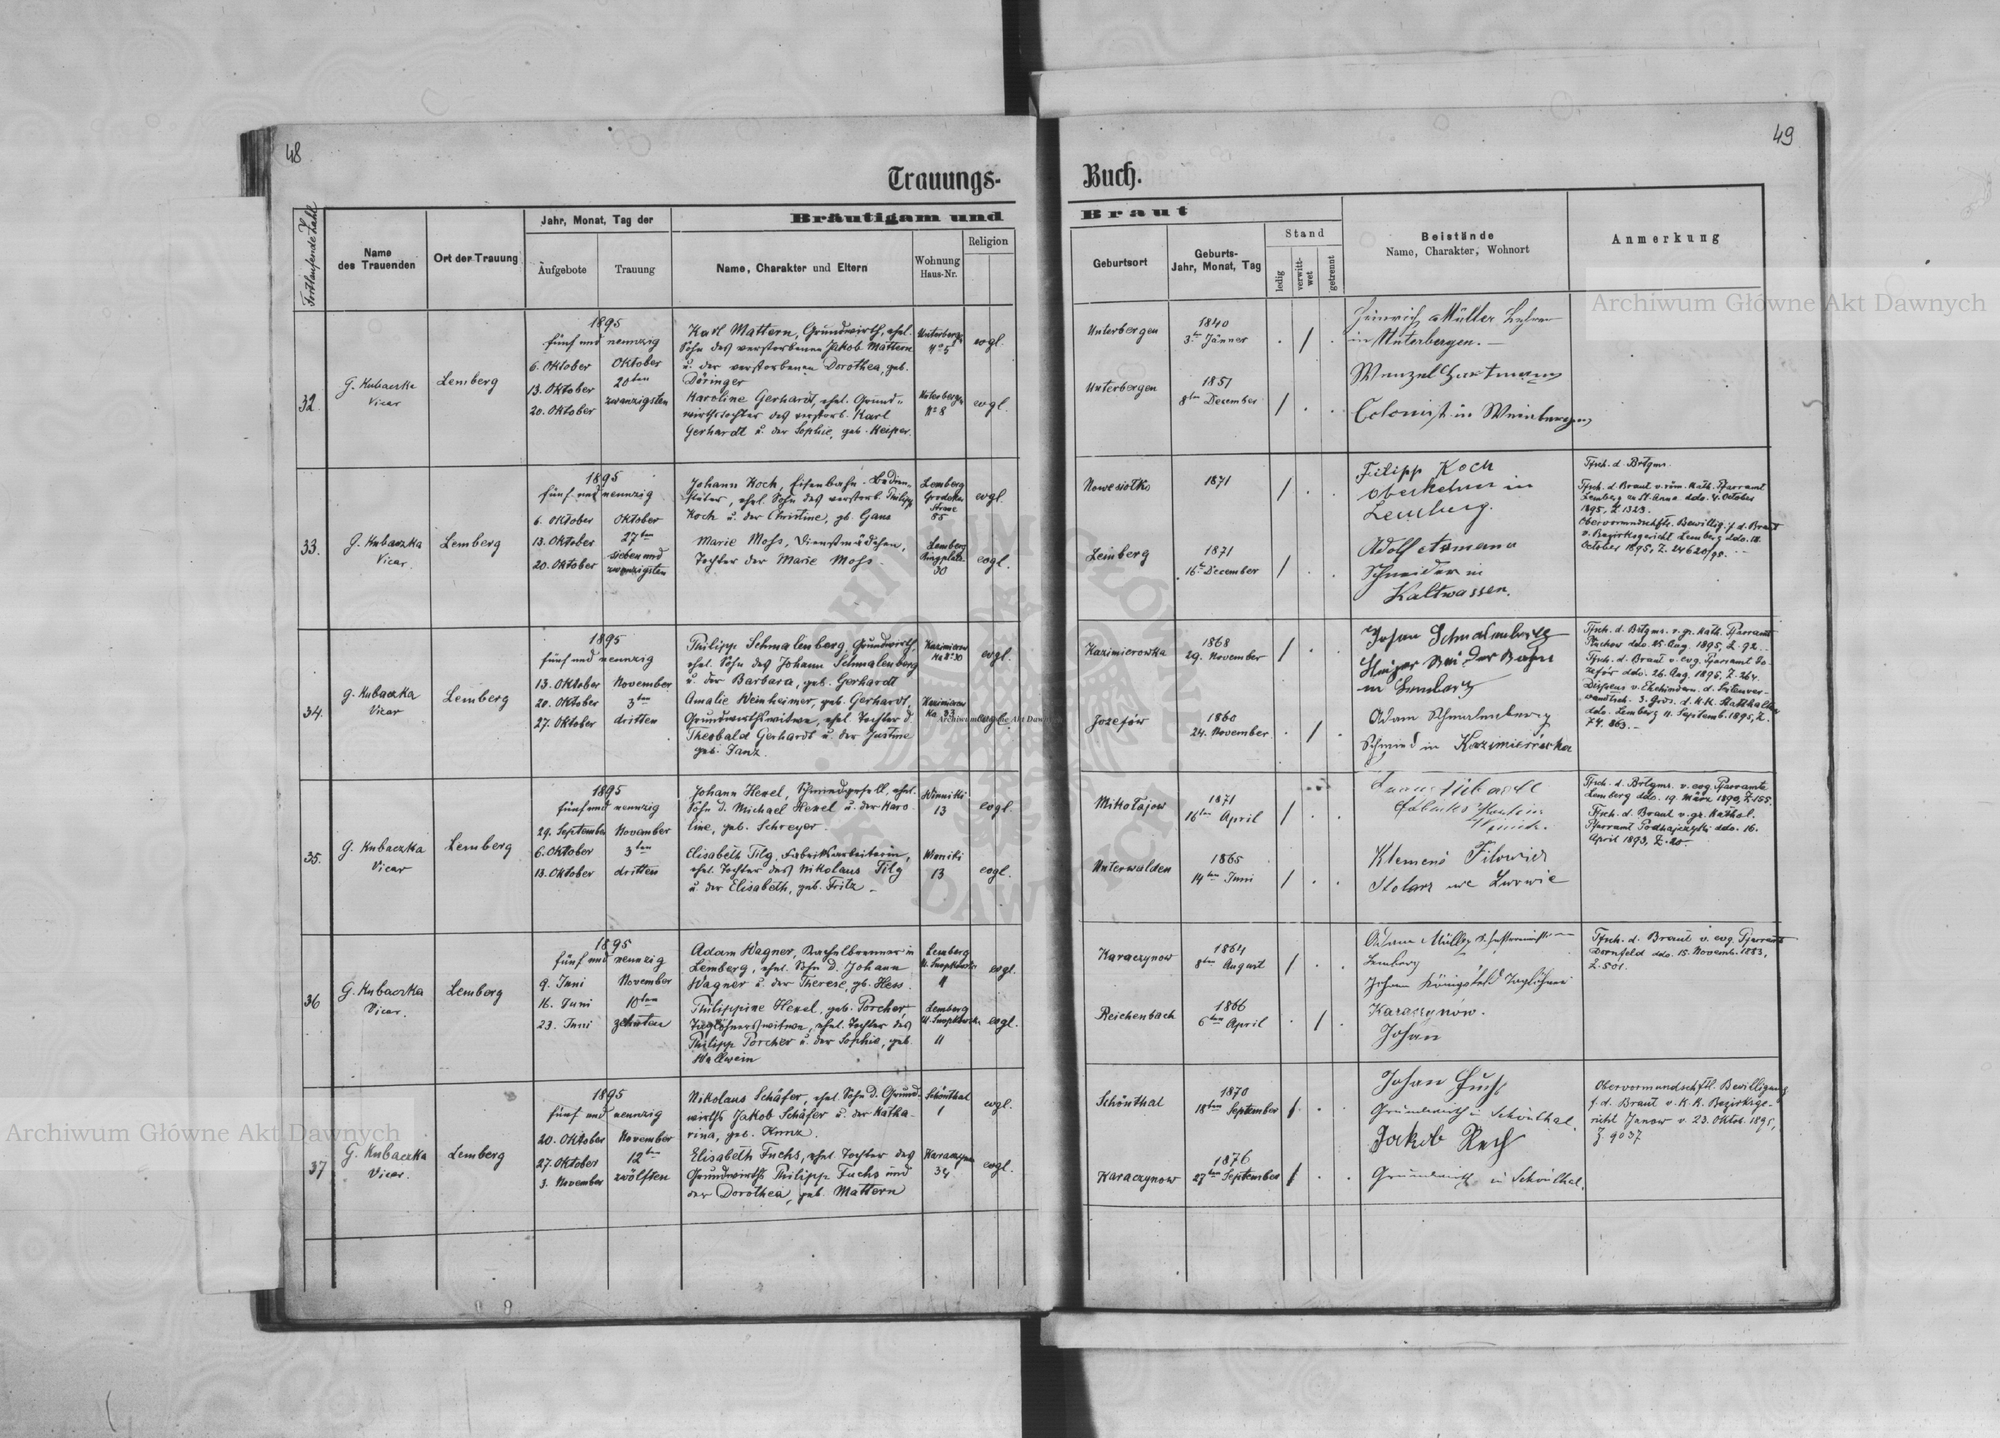 48
49
Trauungs-
Buch.
Fortlaufende Zahl
Name
des Trauenden
Ort der Trauung
Jahr, Monat, Tag der
Aufgebote
Trauung
Bräutigam und
Braut
Name, Charakter und Eltern
Wohnung
Haus-Nr.
Religion
Geburtsort
Geburts-
Jahr, Monat, Tag
Stand
ledig
verwitt-
wet
getrennt
Beistände
Name, Charakter, Wohnort
Anmerkung
32.
G. Kubaczka
Vicar
Lemberg
1895
fünf und neunzig
6. Oktober
13. Oktober
20. Oktober
Oktober
20ten
zwanzigsten
Karl Mattern, Grundwirth, ehel.
Sohn des verstorbenen Jakob Mattern
u. der verstorbenen Dorothea, geb.
Döringer
Karoline Gerhardt, ehel. Grund-
wirthstochter des verstorb. Karl
Gerhardt u. der Sophie, geb. Keiper.
Unterbergen
No 5
Unterbergen
No 8
evgl.
evgl.
Unterbergen
1840
3ten Jänner
Unterbergen
1851
8ten Dezember
Heinrich Müller Lehrer
in Unterbergen. —
Wenzel Hartmann
Colonist in Weinbergen
33.
G. Kubaczka
Vicar.
Lemberg
1895
fünf und neunzig
6. Oktober
13. Oktober
20. Oktober
Oktober
27ten
sieben und
zwanzigsten
Johann Koch, Eisenbahn-Bedien-
steter, ehel. Sohn des verstorb. Philipp
Koch u. der Christine, gb. Gans
Marie Mohs, Dienstmädchen,
Tochter der Marie Mohs.
Lemberg
Grodeker
Strasse
55
Lemberg
Ringplatz
30
evgl.
evgl.
Nowesiolko
1871
Lemberg
1871
16t Dezember
Filipp Koch
in
Lemberg.
Adolf
Schneider in
Kaltwasser.
Tfsch. d. Brtgms.
Tfsch. d. Braut v. röm. Kath. Pfarramt
Lemberg ex St. Anna ddo. 4. October
1895, Z. 1323.
Obervormundschftl. Bewillig. f. d. Braut
v. Bezirksgericht Lemberg ddo. 18.
October 1895, Z. 24620/98.
34.
G. Kubaczka
Vicar
Lemberg
1895
fünf und neunzig
13. Oktober
20. Oktober
27. Oktober
November
3ten
dritten
Philipp Schmalenberg, Grundwirth,
ehel. Sohn des Johann Schmalenberg
u. der Barbara, geb. Gerhardt
Amalie Weinheimer, geb. Gerhardt,
Grundwirthswitwe, ehel. Tochter d.
Theobald Gerhardt u. der Justine
geb. Janz.
Kazimierow
ka No 30
Kazimierow
ka 33
evgl.
evgl.
Kazimierowka
1868
29. November
Jozefów
1860
24. November
Johan Schmalenberg
Heizer bei der Bahn
in Lemberg
Adam Schmalenberg
Schmied in Kazimierówka
Tfsch. d. Brtgms. v. gr. Kath. Pfarramt
ddo. 25. Aug. 1895, Z. 92.
Tfsch. d. Braut v. evg. Pfarramt Jo-
zefór ddo. 26. Aug. 1895, Z. 264.
Dispens v. Ehehindern. d. Seitenver-
wandtsch. 3. Grds. d. k. k. Statthalterei
ddo. Lemberg 11. Septemb. 1895, Z.
74. 863. —
35.
G. Kubaczka
Vicar
Lemberg
1895
fünf und neunzig
29. September
6. Oktober
13. Oktober
November
3ten
dritten
Johann Hexel, Schmiedgesell, ehel.
Sohn d. Michael Hexel u. der Karo-
line, geb. Schreyer.
Elisabeth Tilg, Fabriksarbeiterin,
ehel. Tochter des Nikolaus Tilg
u. der Elisabeth, geb. Fritz. —
Winniki
13
Winniki
13
evgl.
evgl.
Mikołajow
1871
16ten April
Unterwalden
1865
14ten Juni
Klemens
Stolarz we Lwowie
Tfsch. d. Brtgms. v. evg. Pfarramte
Lemberg ddo. 19. März 1890, Z. 155.
Tfsch. d. Braut v. gr. Kathol.
Pfarramt Podhajczyki ddo. 16.
April 1893, Z. 20.
36
G. Kubaczka
Vicar.
Lemberg
1895
fünf und neunzig
9. Juni
16. Juni
23. Juni
November
10ten
zehnten
Adam Wagner, Kachelbrenner in
Lemberg, ehel. Sohn d. Johann
Wagner u. der Therese, gb. Hess.
Philippine Hexel, geb. Porcher,
Taglöhnerswitwe, ehel. Tochter des
Philipp Porcher u. der Sophie, geb.
Wallwein
Lemberg
Ul. Snopkowska
11
Lemberg
Ul. Snopkowska
11
evgl.
evgl.
Karaczynow
1864
8ten August
Reichenbach
1866
6ten April
Adam Müller
Lemberg
Johan Königsfeld Taglöhner
Karaczynów.
Johan
Tfsch. d. Braut v. evg. Pfarramt
Dornfeld ddo. 15. Novemb. 1883,
Z. 501.
37
G. Kubaczka
Vicar.
Lemberg
1895
fünf und neunzig
20. Oktober
27. Oktober
3. November
November
12ten
zwölften
Nikolaus Schäfer, ehel. Sohn d. Grund-
wirths Jakob Schäfer u. der Katha-
rina, geb. Kunz.
Elisabeth Fuchs, ehel. Tochter des
Grundwirths Philipp Fuchs und
der Dorothea, geb. Mattern
Schönthal
1
Karaczynow
34
evgl.
evgl.
Schönthal
1870
18ten September
Karaczynow
1876
27ten September
Johan Fuchs
Grundwirth in Schönthal.
Jakob
Grundwirth in Schönthal.
Obervormundschftl. Bewilligung
f. d. Braut v. K. K. Bezirksge-
richt Janow v. 23. Oktob. 1895,
Z. 9037
Archiwum Główne Akt Dawnych
Archiwum Główne Akt Dawnych
Archiwum Główne Akt Dawnych